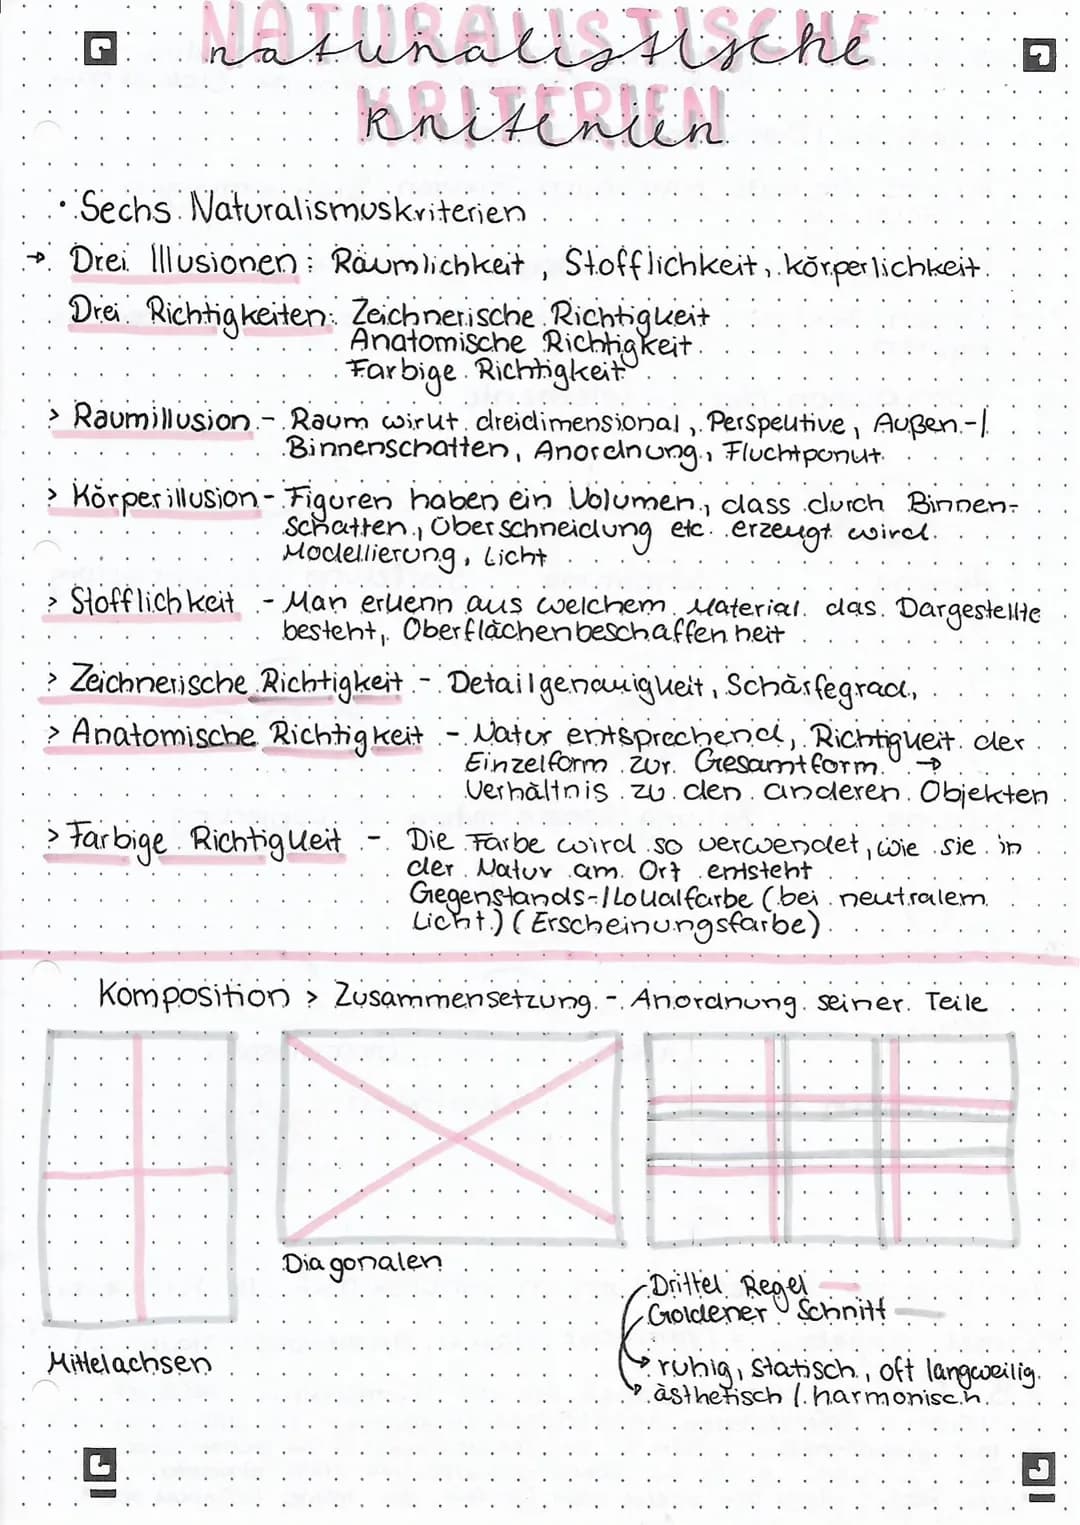 NATURALISTISCHE
naturalistische
KRITERIEN
kriterien
· Sechs Naturalismuskriterien
→ Drei Illusionen: Räumlichkeit, Stofflichkeit, körperlichkeit
Drei Richtigkeiten: Zeichnerische Richtigkeit
Anatomische Richtigkeit
Farbige Richtigkeit
> Raumillusion - Raum wirkt dreidimensional, Perspektive, Außen-/
Binnenschatten, Anordnung, Fluchtpunkt
> Körperillusion - Figuren haben ein Volumen, dass durch Binnen-
schatten, Überschneidung etc. erzeugt wird.
Modellierung, Licht
> Stofflichkeit - Man erkenn aus welchem Material das Dargestellte
besteht, Oberflächenbeschaffenheit
> Zeichnerische Richtigkeit - Detailgenauigkeit, Schärfegrad,
> Anatomische Richtigkeit - Natur entsprechend, Richtigkeit der
Einzelform zur Gesamtform →
Verhältnis zu den anderen Objekten
> Farbige Richtigkeit - Die Farbe wird so verwendet, wie sie in
der Natur am Ort entsteht
Gegenstands-/Lokalfarbe (bei neutralem
Licht) (Erscheinungsfarbe)
Komposition > Zusammensetzung - Anordnung seiner Teile
Diagonalen
Drittel Regel
Goldener Schnitt
Mittelachsen
→ ruhig, statisch, oft langweilig
→ ästhetisch / harmonisch